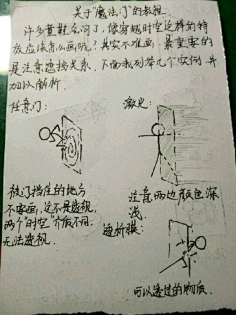 关于"魔法门"的教程
许多董鞋会问了，像穿越时空这样的特
效应该怎么画呢？其实不难画，最重要的
是注意遮挡关系，下面我列举几个实例并
加以解析
任意门：
激光：
被门挡住的地方
不要画，这不是透视，
两个"时空"介质不同，
无法透视．
注意两边颜色深
浅．
透析膜：
可以透过的物质．